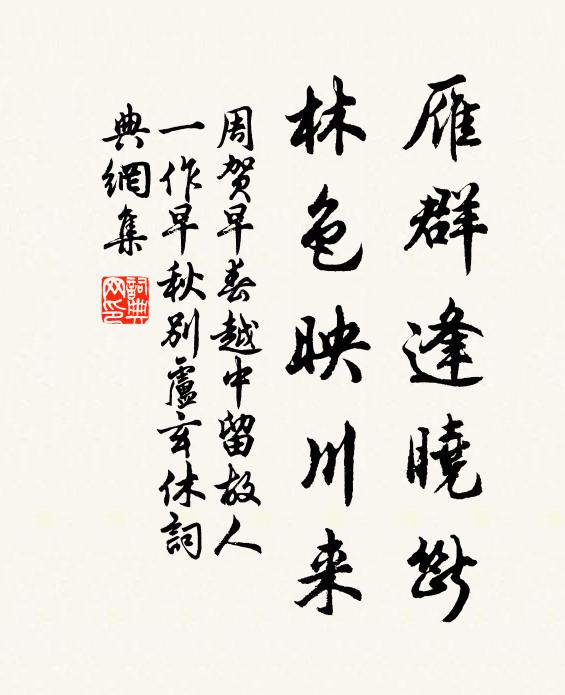 雁群逢曉斷
林色映川来
周贺早春越中留故人
一作早秋别盧玄休詞
典網集
詞典网印